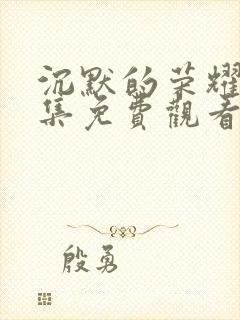 沉默的荣耀
集免費觀看
殷勇